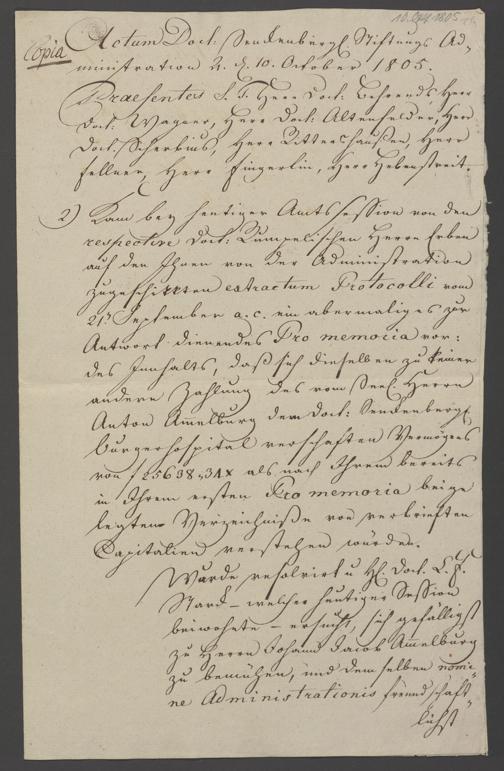 10. Oct. 1805
Copia
Actum Doct: Senckenbergl. Stiftungs Ad-
ministration 2. d. 10. October 1805.
Praesentes S. T. Herr Doct: Behrends Herr
Doct: Wagner, Herr Doct: Altenfelder, Herr
Doct: Scherbius, Herr Ritterhaußen, Herr
Fellner, Herr Fingerlin, Herr Hebenstreit.
2) Kam bey heutiger Amtssession von den
respective Doct: Rumpelischen Herrn Erben
auf den Ihnen von der Administration
zugeschickten extractum Protocolli vom
21t. September a. c. ein abermaliges zur
Antwort dienendes Pro memoria vor:
des Innhalts, daß sich dieselben zu keiner
andern Zahlung des vom Seel. Herrn
Anton Amelburg dem Doct: Senckenbergl.
Burgerhospital verschaften Vermögens
von f 25698,34x als nach Ihrem bereits
in Ihrem ersten Pro memoria beige
legten Verzeichniße von verbrieften
Capitalien verstehen würden.
Wurde resolvirt u Hl. Doct. L. F.
Starck – welcher heutiger Session
beiwohnte – ersucht, sich gefälligst
zu Herrn Johann Jacob Amelburg
zu bemühen, und demselben nomi
ne Administrationis freundschaft
lichst